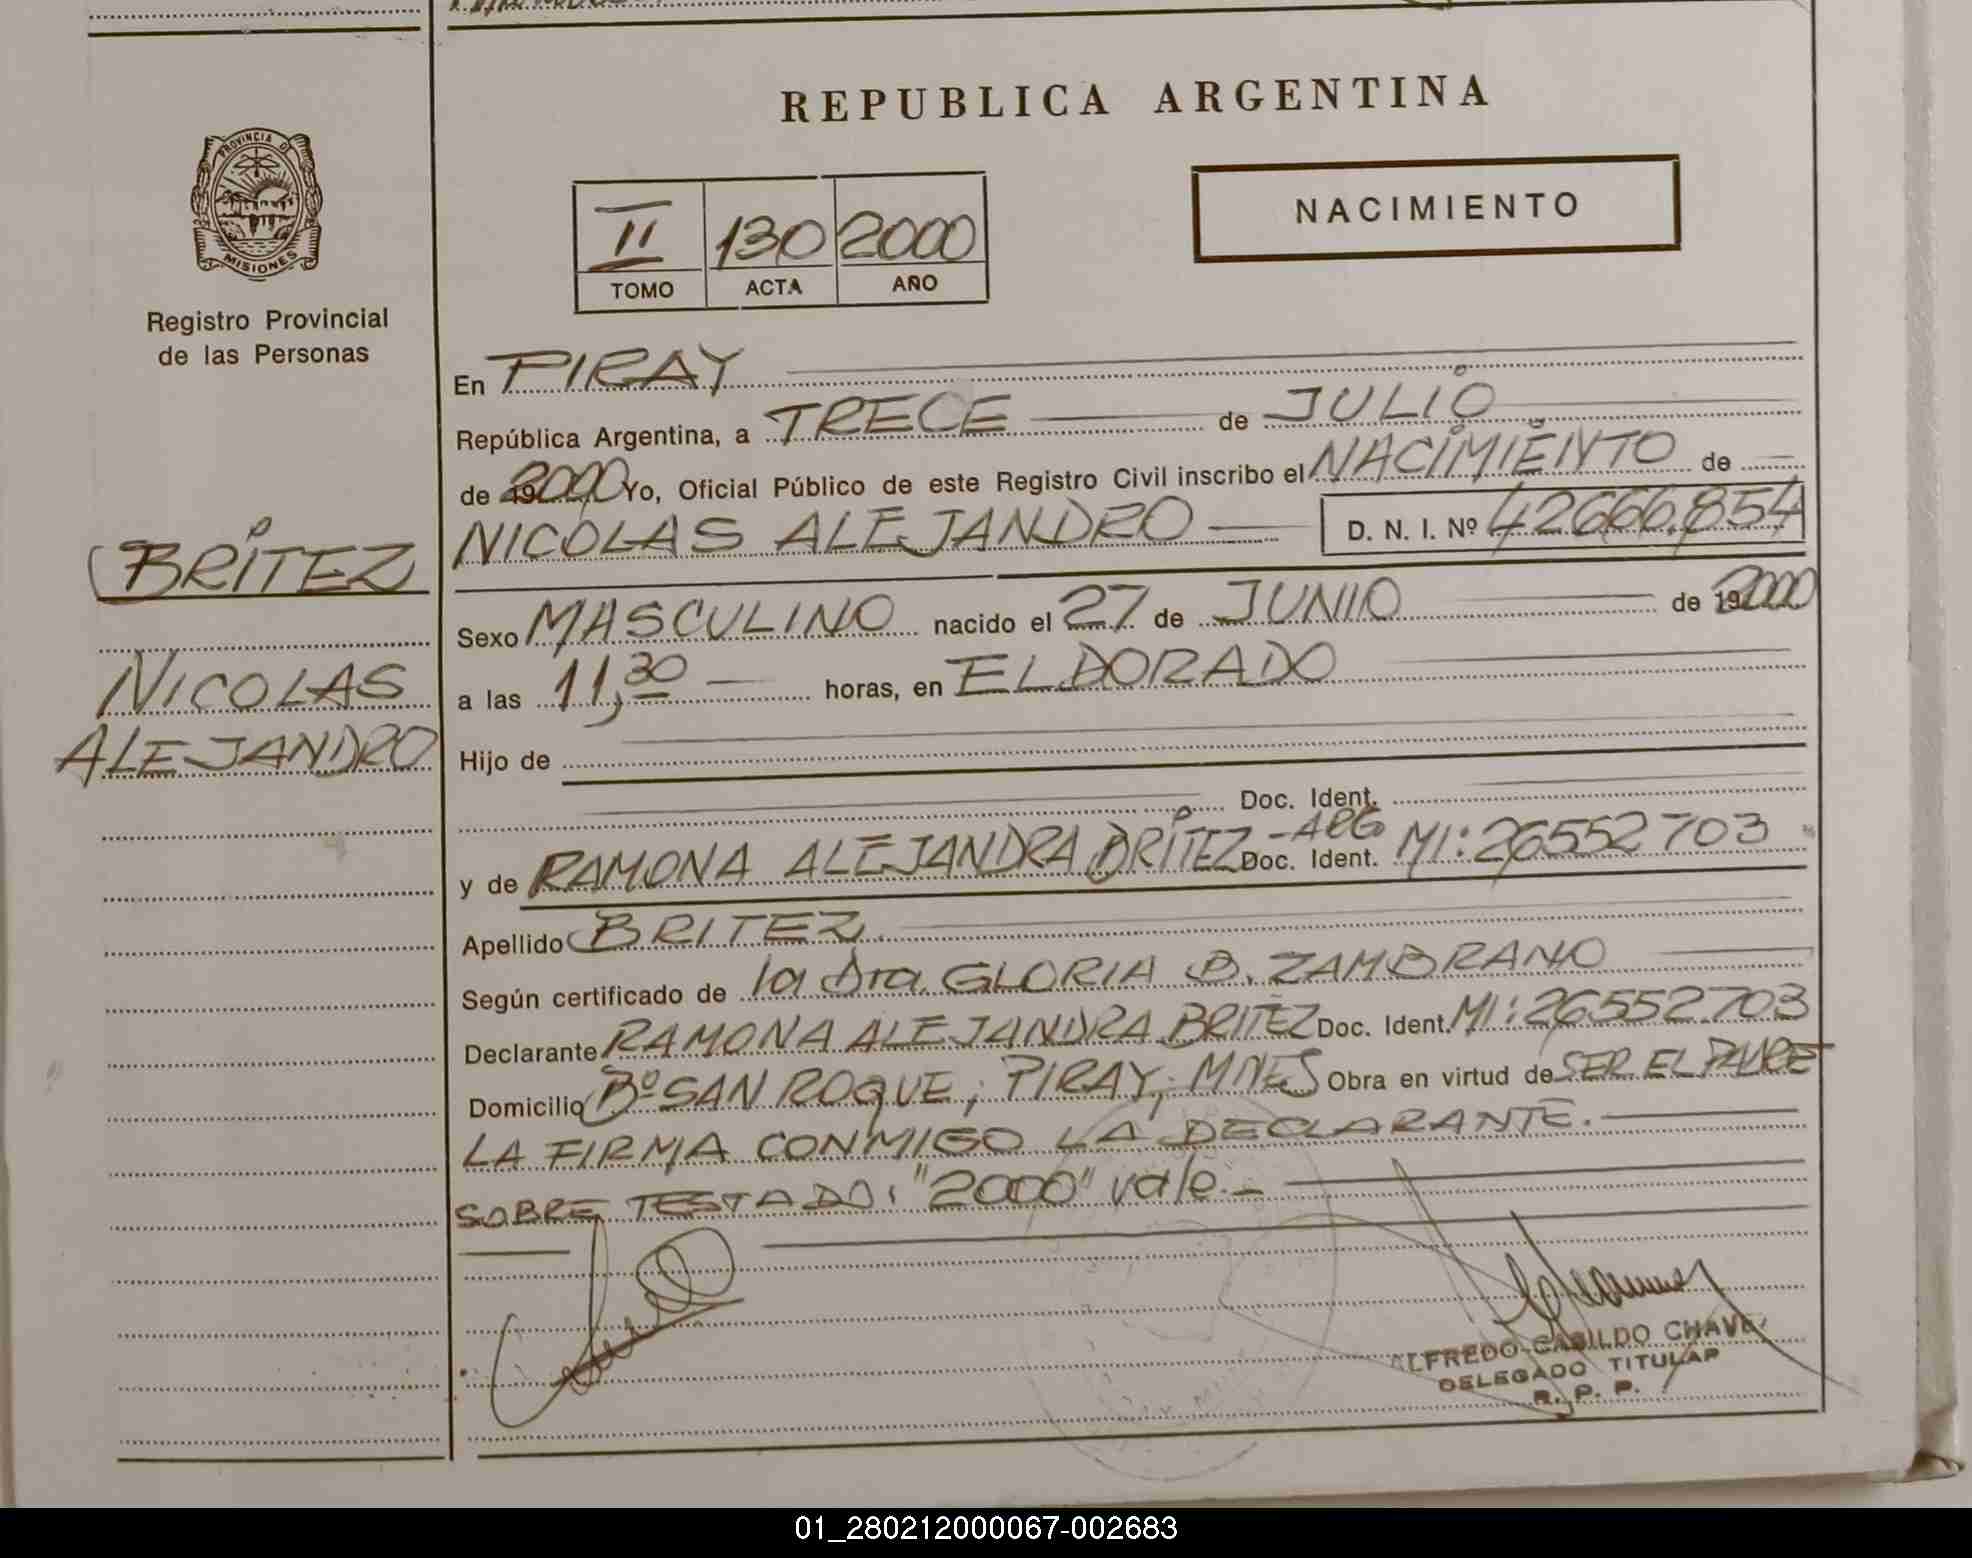 REPUBLICA ARGENTINA
PROVINCIA DE
MISIONES
Registro Provincial
de las Personas
BRITEZ
NICOLAS
ALEJANDRO
NACIMIENTO
II 130 2000
TOMO ACTA AÑO
En PIRAY
República Argentina, a TRECE de JULIO
de 2000 Yo, Oficial Público de este Registro Civil inscribo el NACIMIENTO de
NICOLAS ALEJANDRO D. N. I. Nº 42666,854
Sexo MASCULINO nacido el 27 de JUNIO de 2000
a las 11,30 horas, en ELDORADO
Hijo de
Doc. Ident.
y de RAMONA ALEJANDRA BRITEZ -ARG Doc. Ident. MI: 26552703
Apellido BRITEZ.
Según certificado de la Dra. GLORIA B. ZAMBRANO
Declarante RAMONA ALEJANDRA BRITEZ Doc. Ident. MI: 26552.703
Domicilio Bº SAN ROQUE, PIRAY, MNES Obra en virtud de SER EL
LA FIRMA CONMIGO LA DECLARANTE.
SOBRE TESTADO: "2000" vale.-
ALFREDO CABILDO CHAVEZ
DELEGADO TITULAR
R. P. P.
01_280212000067-002683